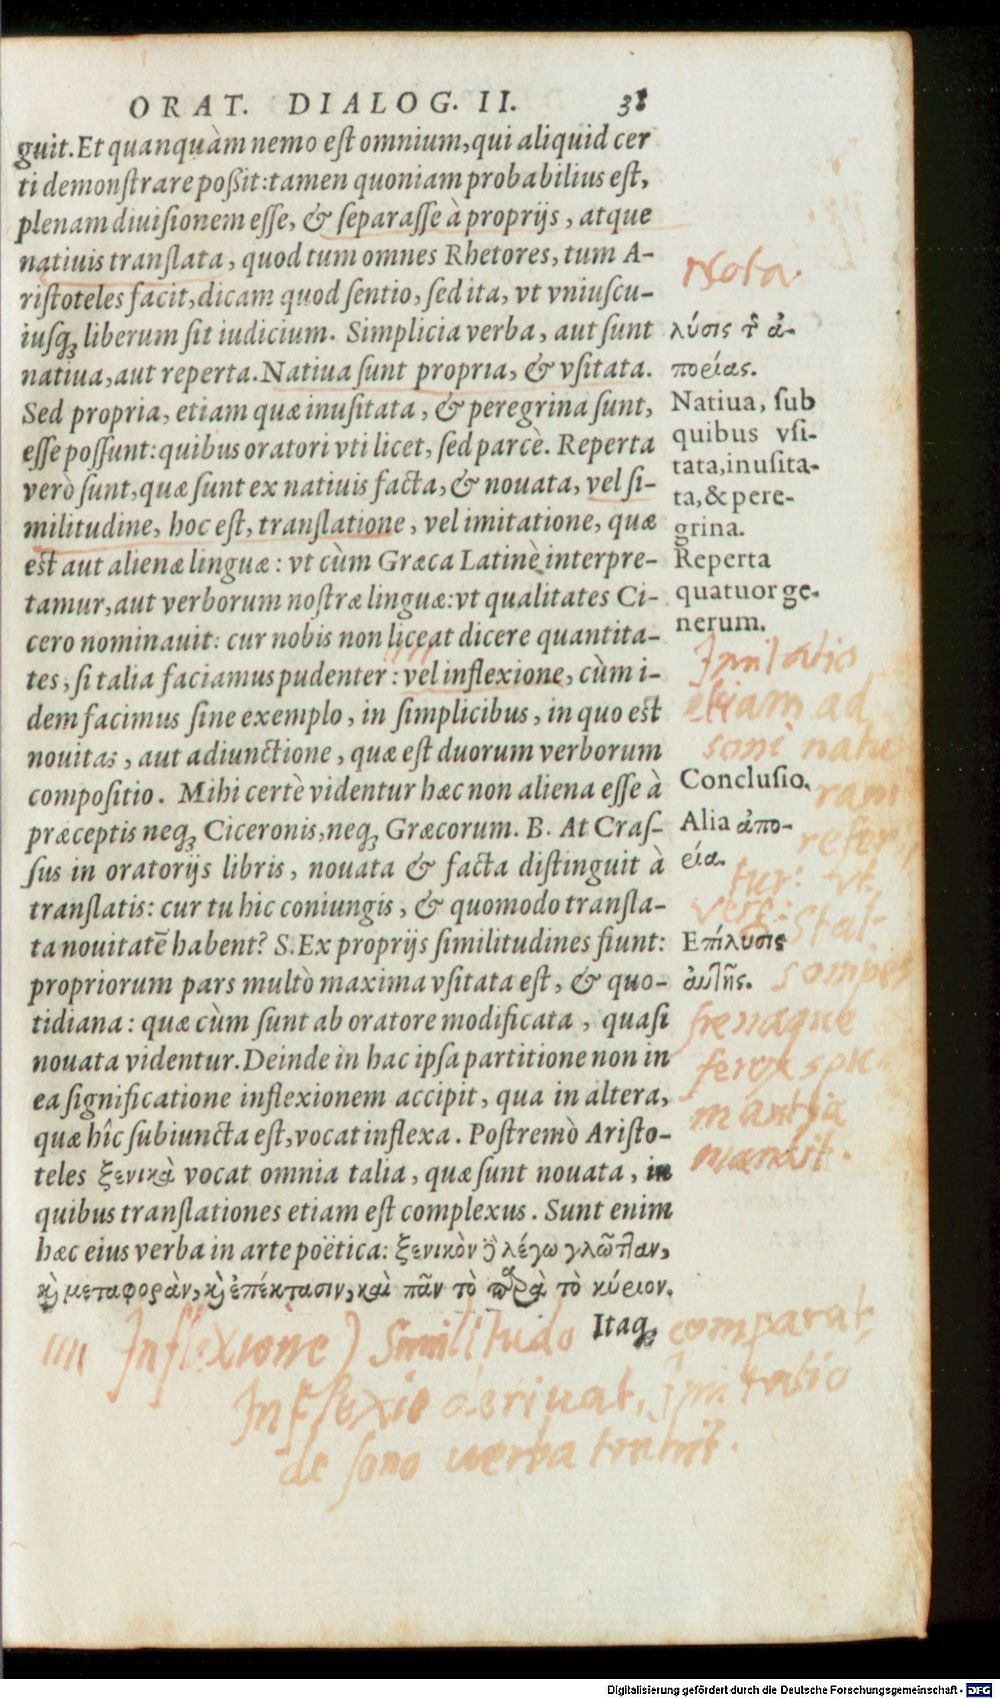 ORAT. DIALOG. II. 31
guit. Et quanquàm nemo est omnium, qui aliquid cer
ti demonstrare poßit: tamen quoniam probabilius est,
plenam diuisionem esse, & separasse à proprijs, atque
natiuis translata, quod tum omnes Rhetores, tum A-
ristoteles facit, dicam quod sentio, sed ita, vt vniuscu-
iusq́; liberum sit iudicium. Simplicia verba, aut sunt
natiua, aut reperta. Natiua sunt propria, & vsitata.
Sed propria, etiam quæ inusitata, & peregrina sunt,
esse possunt: quibus oratori vti licet, sed parcè. Reperta
verò sunt, quæ sunt ex natiuis facta, & nouata, vel si-
militudine, hoc est, translatione, vel imitatione, quæ
est aut alienæ linguæ: vt cùm Græca Latinè interpre-
tamur, aut verborum nostræ linguæ: vt qualitates Ci-
cero nominauit: cur nobis non liceat dicere quantita-
tes, si talia faciamus pudenter: vel inflexione, cùm i-
dem facimus sine exemplo, in simplicibus, in quo est
nouitas, aut adiunctione, quæ est duorum verborum
compositio. Mihi certè videntur hæc non aliena esse à
præceptis neq́; Ciceronis, neq́; Græcorum. B. At Cras-
sus in oratorijs libris, nouata & facta distinguit à
translatis: cur tu hic coniungis, & quomodo transla-
ta nouitatē habent? S. Ex proprijs similitudines fiunt:
propriorum pars multò maxima vsitata est, & quo-
tidiana: quæ cùm sunt ab oratore modificata, quasi
nouata videntur. Deinde in hac ipsa partitione non in
ea significatione inflexionem accipit, qua in altera,
quæ hîc subiuncta est, vocat inflexa. Postremò Aristo-
teles ξενικὰ vocat omnia talia, quæ sunt nouata, in
quibus translationes etiam est complexus. Sunt enim
hæc eius verba in arte poëtica: ξενικὸν δὲ λέγω γλῶτταν,
καὶ μεταφορὰν, καὶ ἐπέκτασιν, καὶ πᾶν τὸ παρὰ τὸ κύριον.
Itaq́;
Nota.
λύσις τῆς ἀ-
πορίας.
Natiua, sub
quibus vsi-
tata, inusita-
ta, & pere-
grina.
Reperta
quatuor ge-
nerum.
Imitatio
etiam ad
soni natu
ram
refer
tur: vt
Conclusio.
Alia ἀπο-
ρία.
Ἐπίλυσις
αὐτῆς.
frenaque
ferox spu-
mantia
mandit.
IIII Inflexione) Similitudo comparat,
Inflexio deriuat, Imitatio
de sono uerba trahit.
Digitalisierung gefördert durch die Deutsche Forschungsgemeinschaft - DFG